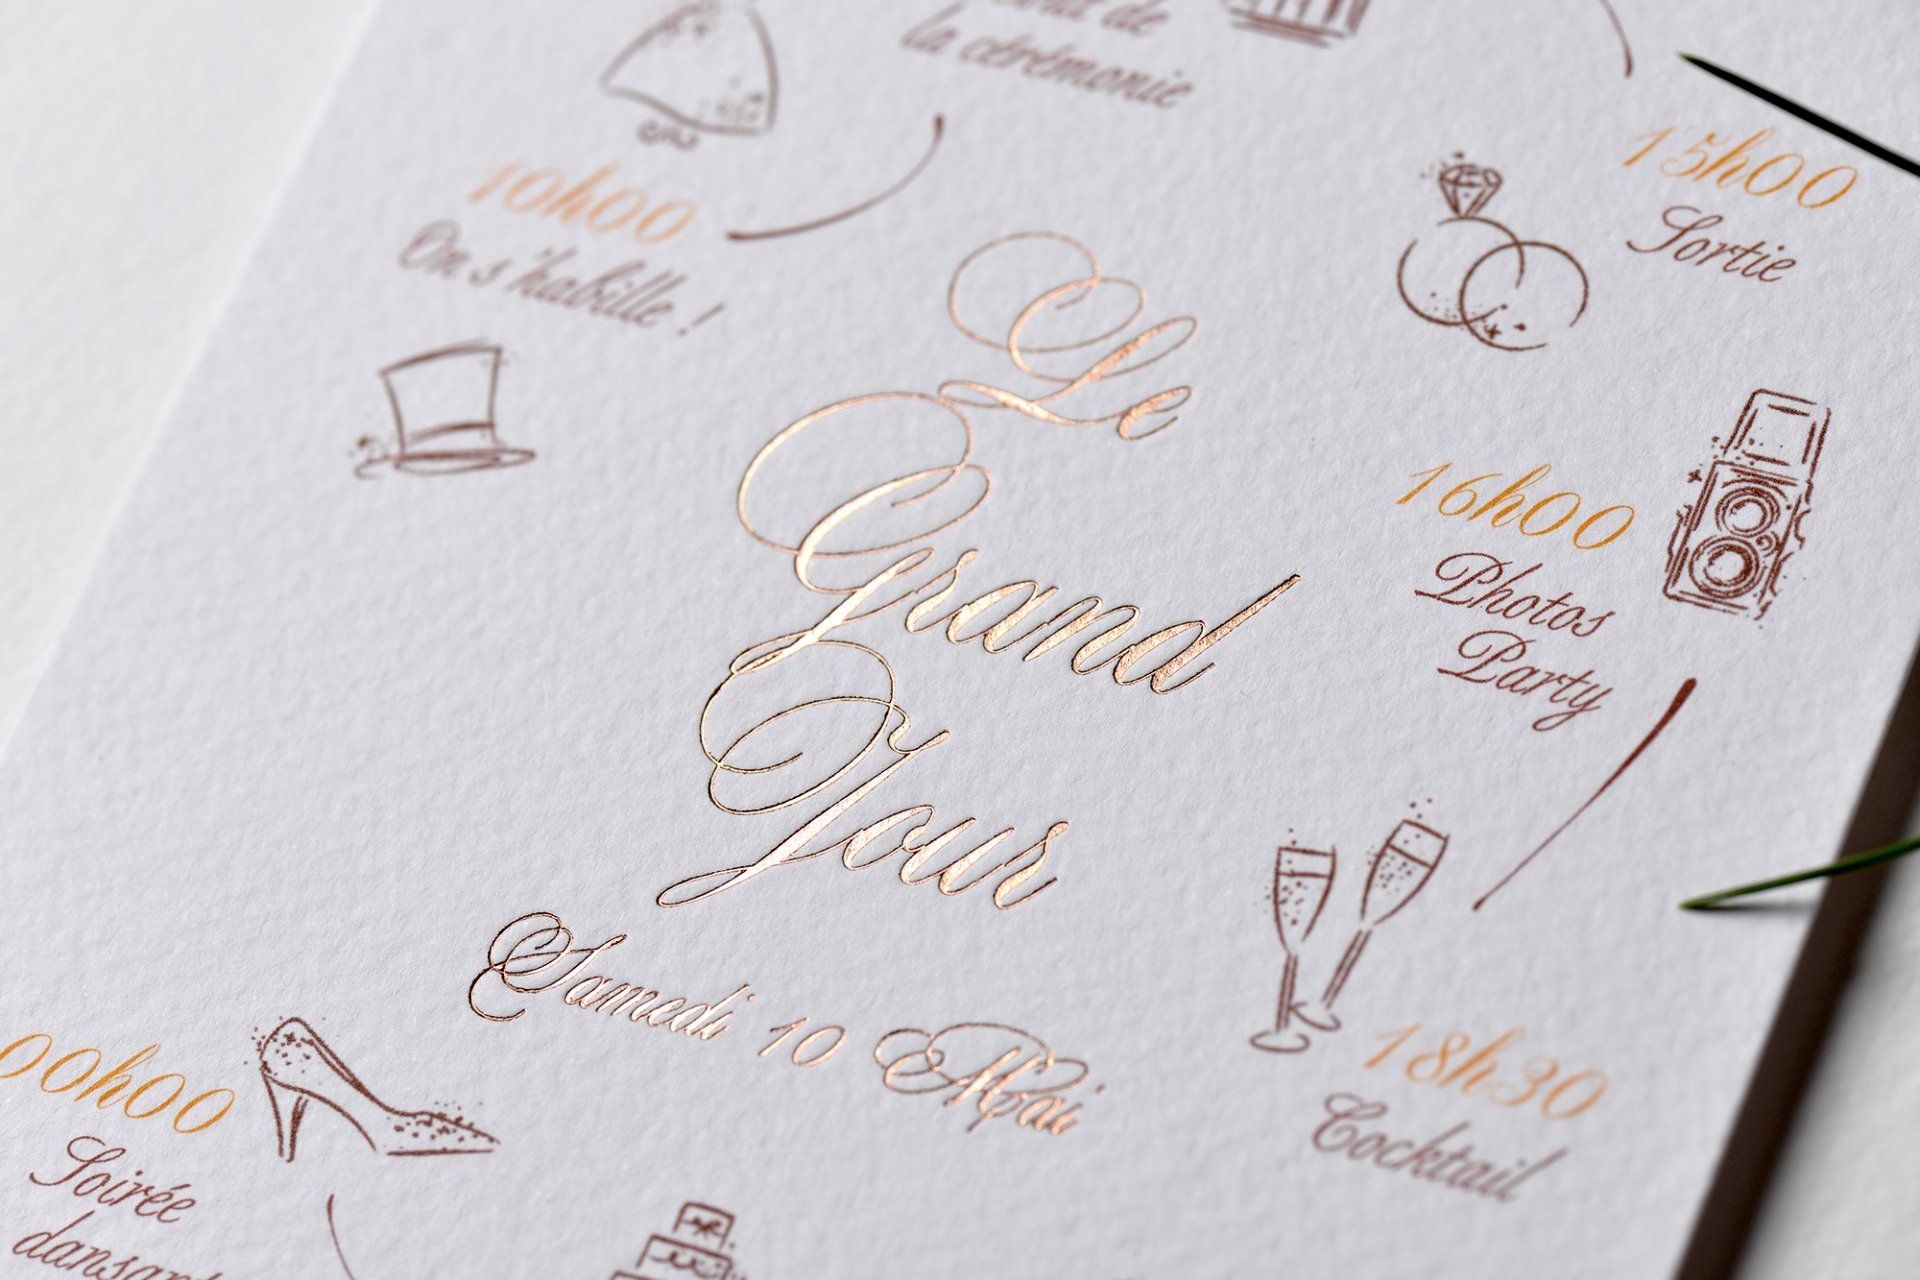 de
la cérémonie
10h00
On s'habille !
15h00
Sortie
Le
Grand
Jour
Samedi 10 Mai
16h00
Photos
Party
18h30
Cocktail
00h00
Soirée